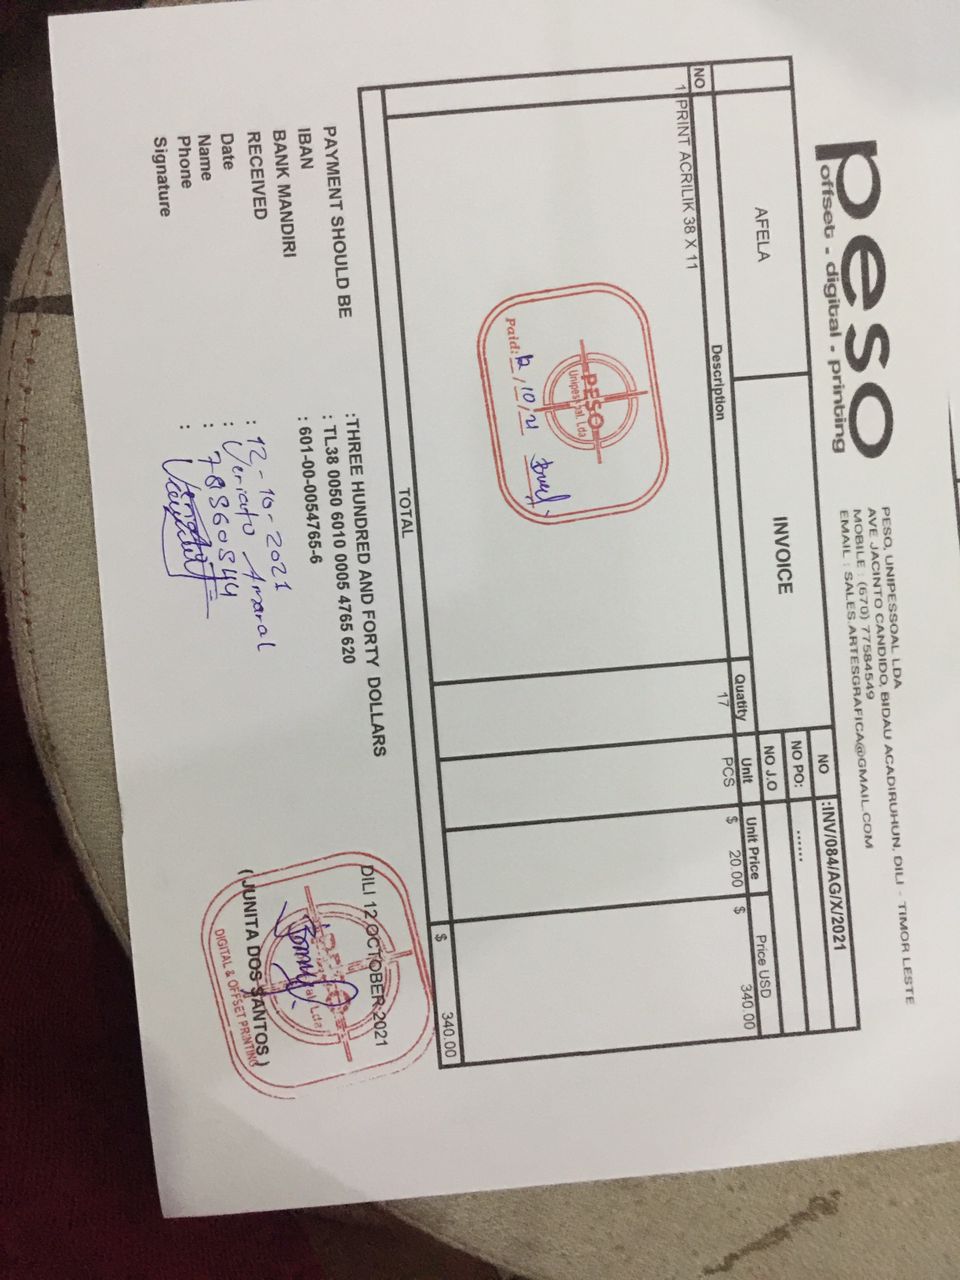 peso
offset - digital - printing
PESO, UNIPESSOAL LDA
AVE JACINTO CANDIDO, BIDAU ACADIRUHUN, DILI - TIMOR LESTE
MOBILE : (670) 77584549
EMAIL : SALES.ARTESGRAFICA@GMAIL.COM
AFELA
INVOICE
NO :INV/084/AG/X/2021
NO PO: ......
NO J.O
NO Description Quatity Unit Unit Price Price USD
1 PRINT ACRILIK 38 X 11 17 PCS $ 20.00 $ 340.00
PESO
Unipessoal, Lda
Paid: 12/10/21
TOTAL $ 340.00
PAYMENT SHOULD BE :THREE HUNDRED AND FORTY DOLLARS
IBAN : TL38 0050 6010 0005 4765 620
BANK MANDIRI : 601-00-0054765-6
RECEIVED
Date : 12-10-2021
Name : Amaral
Phone :
Signature :
DILI 12 OCTOBER 2021
PESO
Lda
( JUNITA DOS SANTOS )
DIGITAL & OFFSET PRINTING